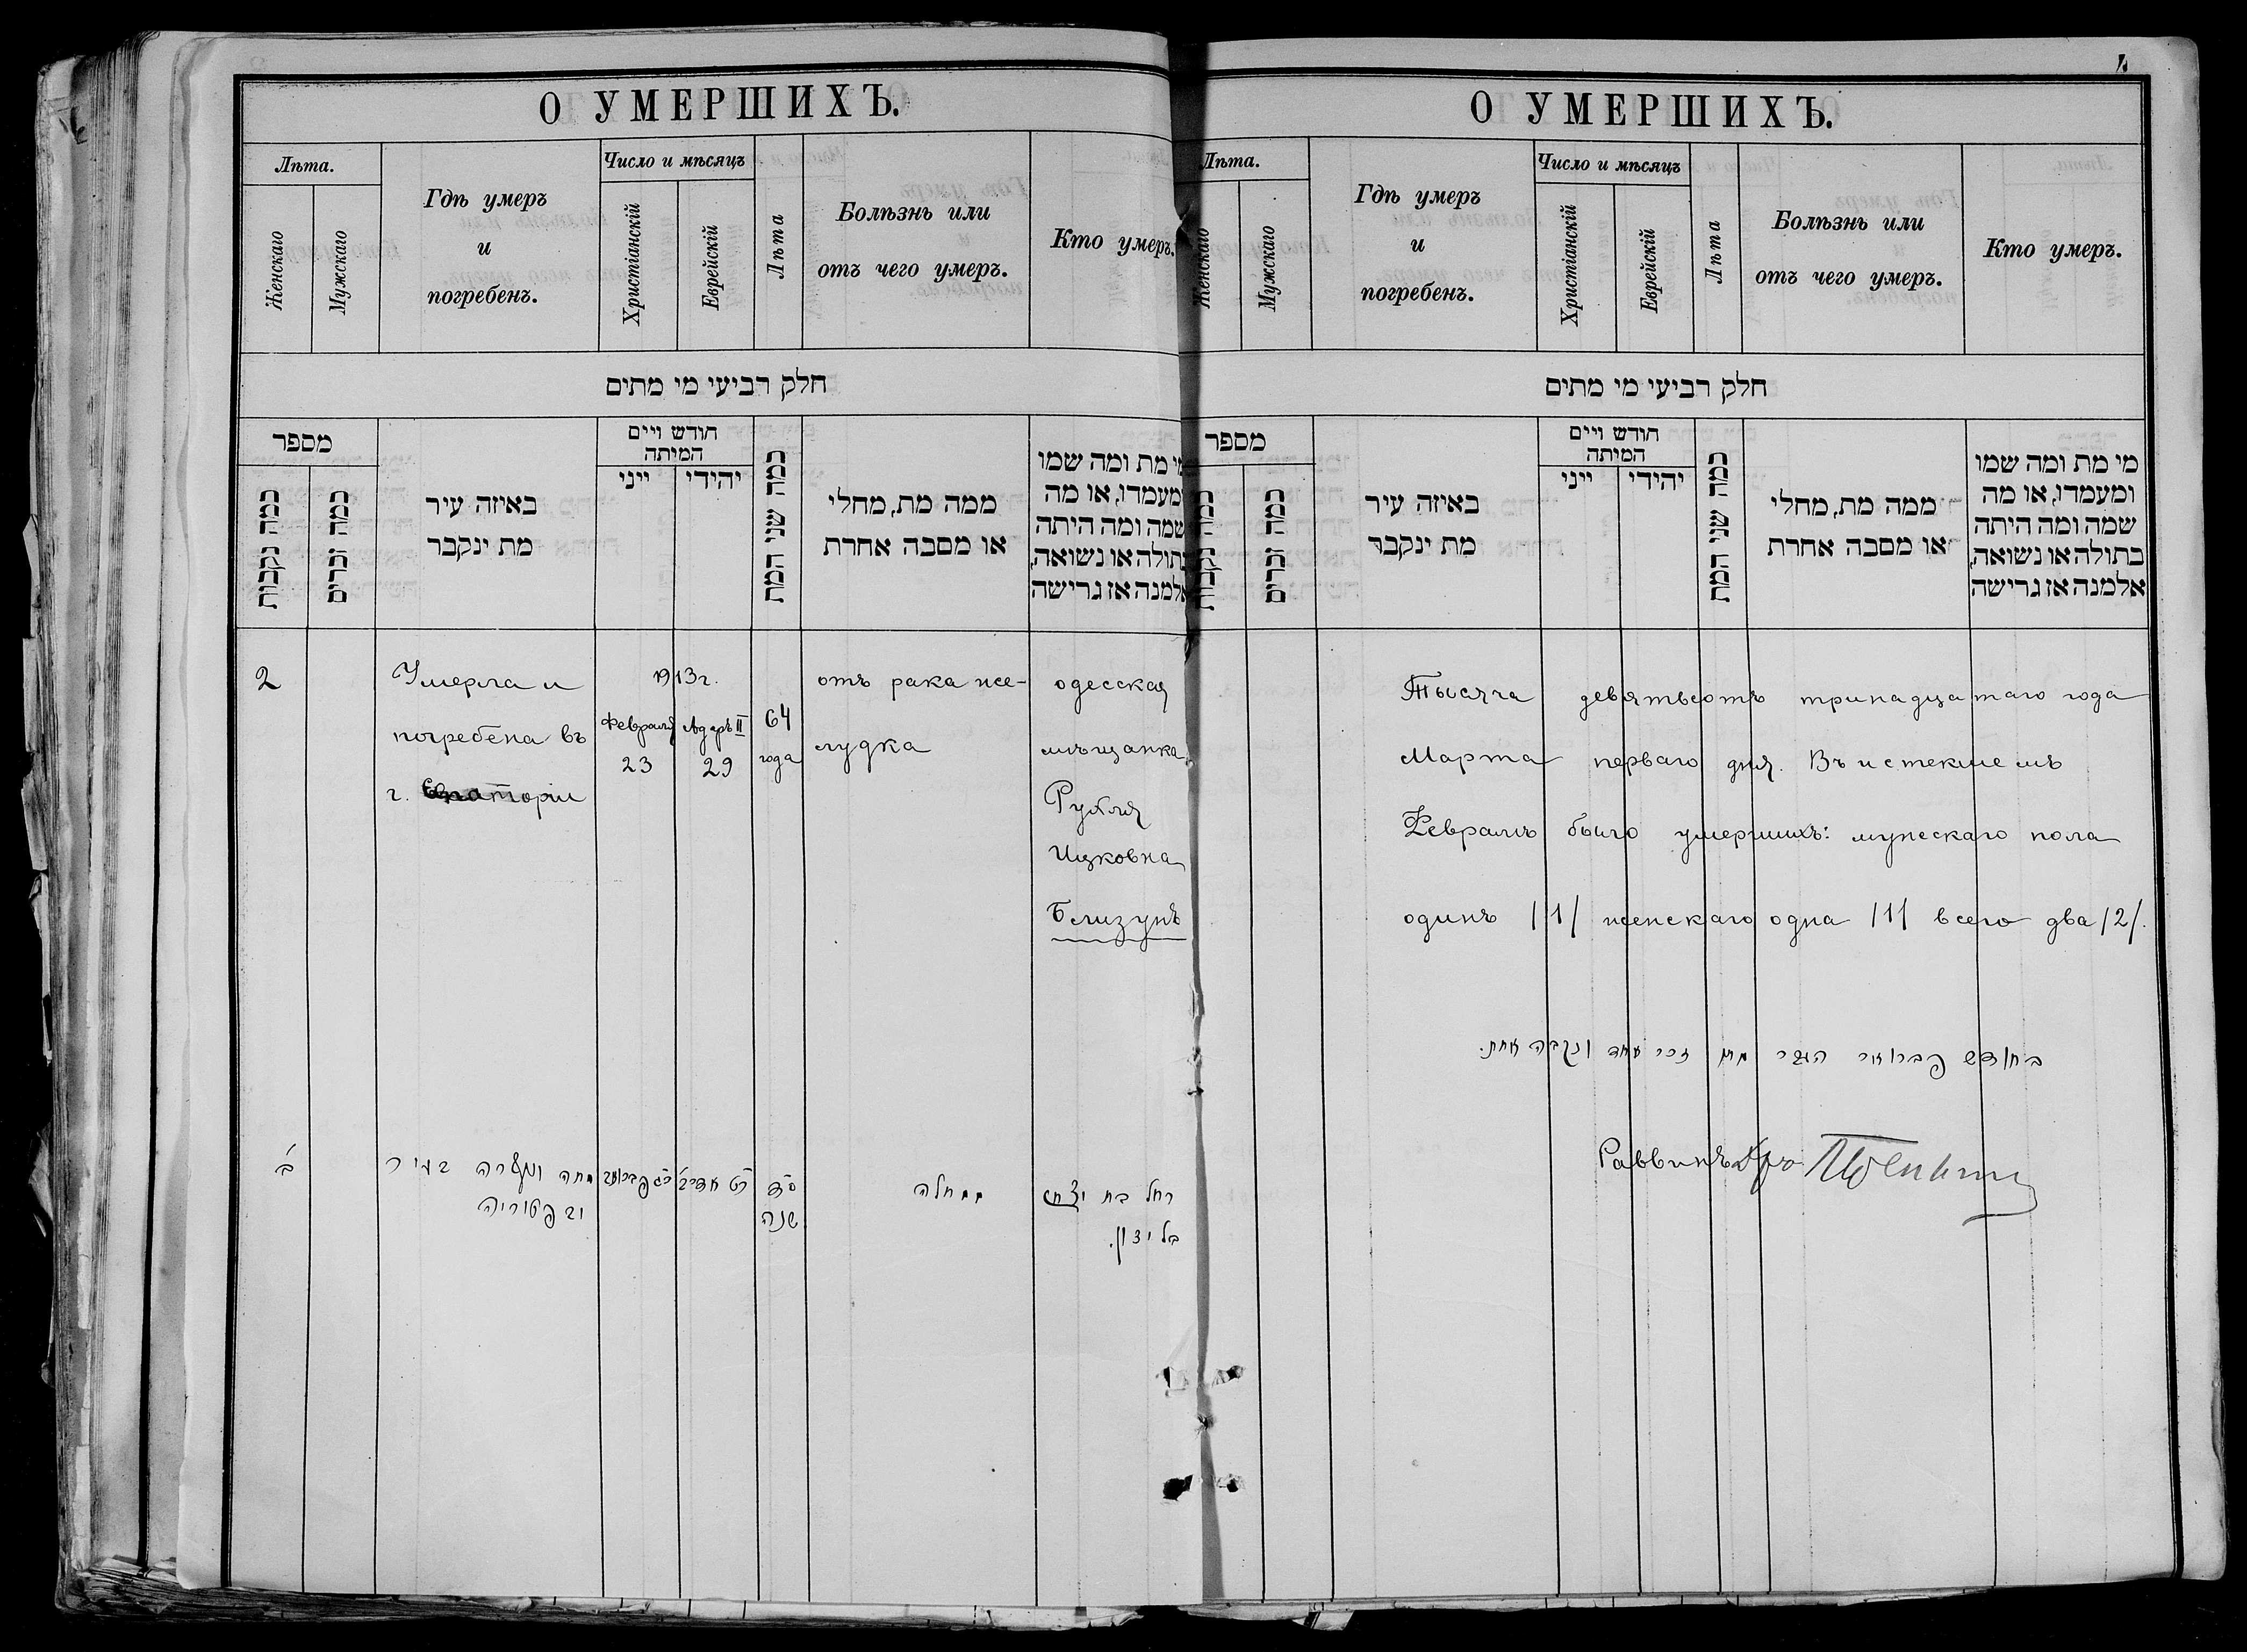 О УМЕРШИХЪ.
Лѣта.
Женскаго
Мужскаго
Гдѣ умеръ
и
погребенъ.
Число и мѣсяцъ
Христіанскій
Еврейскій
Лѣта
Болѣзнь или
отъ чего умеръ.
Кто умеръ.
חלק רביעי מי מתים
מספר
כמה נקבות
כמה זכרים
באיזה עיר
מת ינקבר
חודש ויים
המיתה
ייני
יהידי
כמה שני המת
ממה מת, מחלי
או מסבה אחרת
מי מת ומה שמו
ומעמדו, או מה
שמה ומה היתה
בתולה או נשואה,
אלמנה אז גרישה
2
Умерла и
погребена въ
г. Евпаторіи
1913 г.
Февраля
23
Адаръ II
29
64
года
отъ рака же-
лудка
одесская
мѣщанка
Рухля
Ицковна
Близунъ
ב
מתה ונקברה בעיר
כ"ג פברואר
כ"ט אדר
ס"ד
שנה
ממחלה
רחל בת יצחק
בליזון.
О УМЕРШИХЪ.
Лѣта.
Женскаго
Мужскаго
Гдѣ умеръ
и
погребенъ.
Число и мѣсяцъ
Христіанскій
Еврейскій
Лѣта
Болѣзнь или
отъ чего умеръ.
Кто умеръ.
חלק רביעי מי מתים
מספר
כמה נקבות
כמה זכרים
באיזה עיר
מת ינקבר
חודש ויים
המיתה
ייני
יהידי
כמה שני המת
ממה מת, מחלי
או מסבה אחרת
מי מת ומה שמו
ומעמדו, או מה
שמה ומה היתה
בתולה או נשואה,
אלמנה אז גרישה
Тысяча девятьсотъ тринадцатаго года
Марта перваго дня. Въ истекшемъ
Февралѣ было умершихъ: мужескаго пола
одинъ /1/ женскаго одна /1/ всего два /2/.
בחודש פברואר העבר מת זכר אחד ונקבה אחת.
Раввинъ